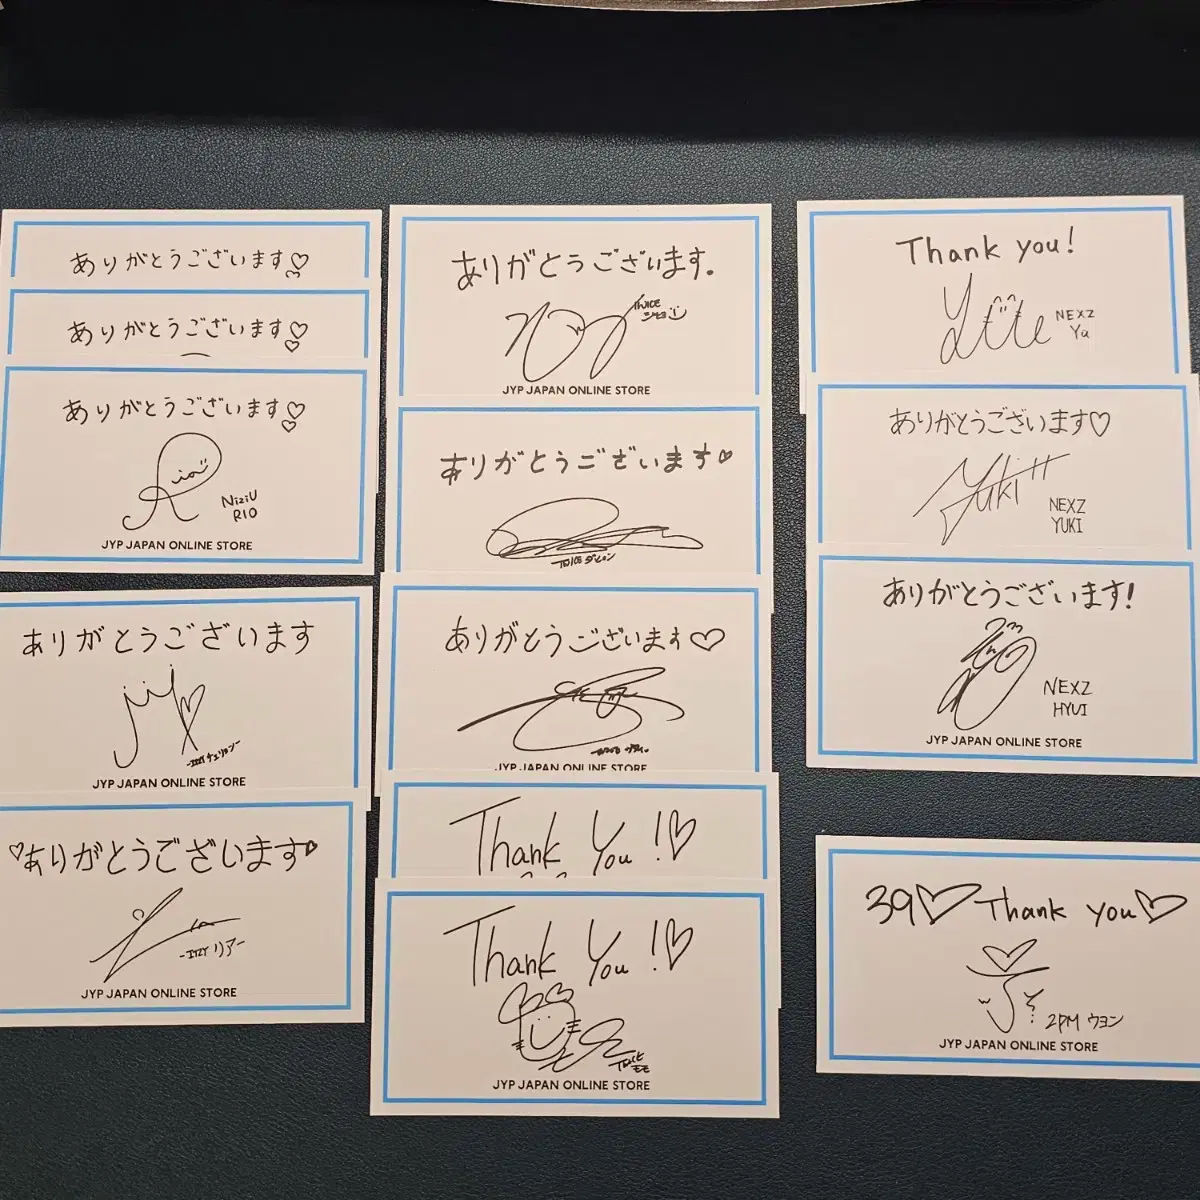 ありがとうございます♡
ありがとうございます♡
ありがとうございます♡
Rio
NiziU
RIO
JYP JAPAN ONLINE STORE
ありがとうございます
-ITZY チェリョン-
JYP JAPAN ONLINE STORE
♡ありがとうございます♡
-ITZY リア-
JYP JAPAN ONLINE STORE
ありがとうございます.
TWICE
ジヒョ
JYP JAPAN ONLINE STORE
ありがとうございます♡
TWICE ダヒョン
ありがとうございます♡
JYP JAPAN ONLINE STORE
Thank You!♡
Thank You!♡
TWICE
モモ
JYP JAPAN ONLINE STORE
Thank you!
NEXZ
Yu
ありがとうございます♡
Yuki
NEXZ
YUKI
ありがとうございます!
NEXZ
HYUI
JYP JAPAN ONLINE STORE
39♡Thank you♡
2PM ウヨン
JYP JAPAN ONLINE STORE